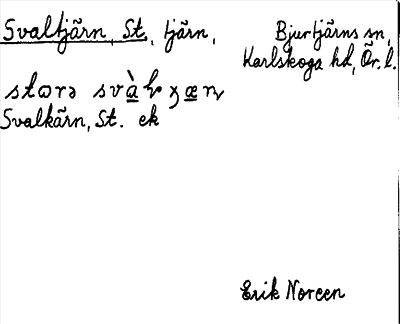 Svaltjärn, St., tjärn,
Bjurtjärns sn,
Karlskoga hd, Ör. l.
Svalkärn, St. ek
Erik Noreen